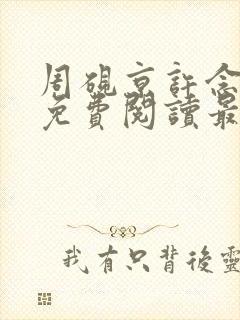 周硯京許念
免費閱讀最
我有只背後靈